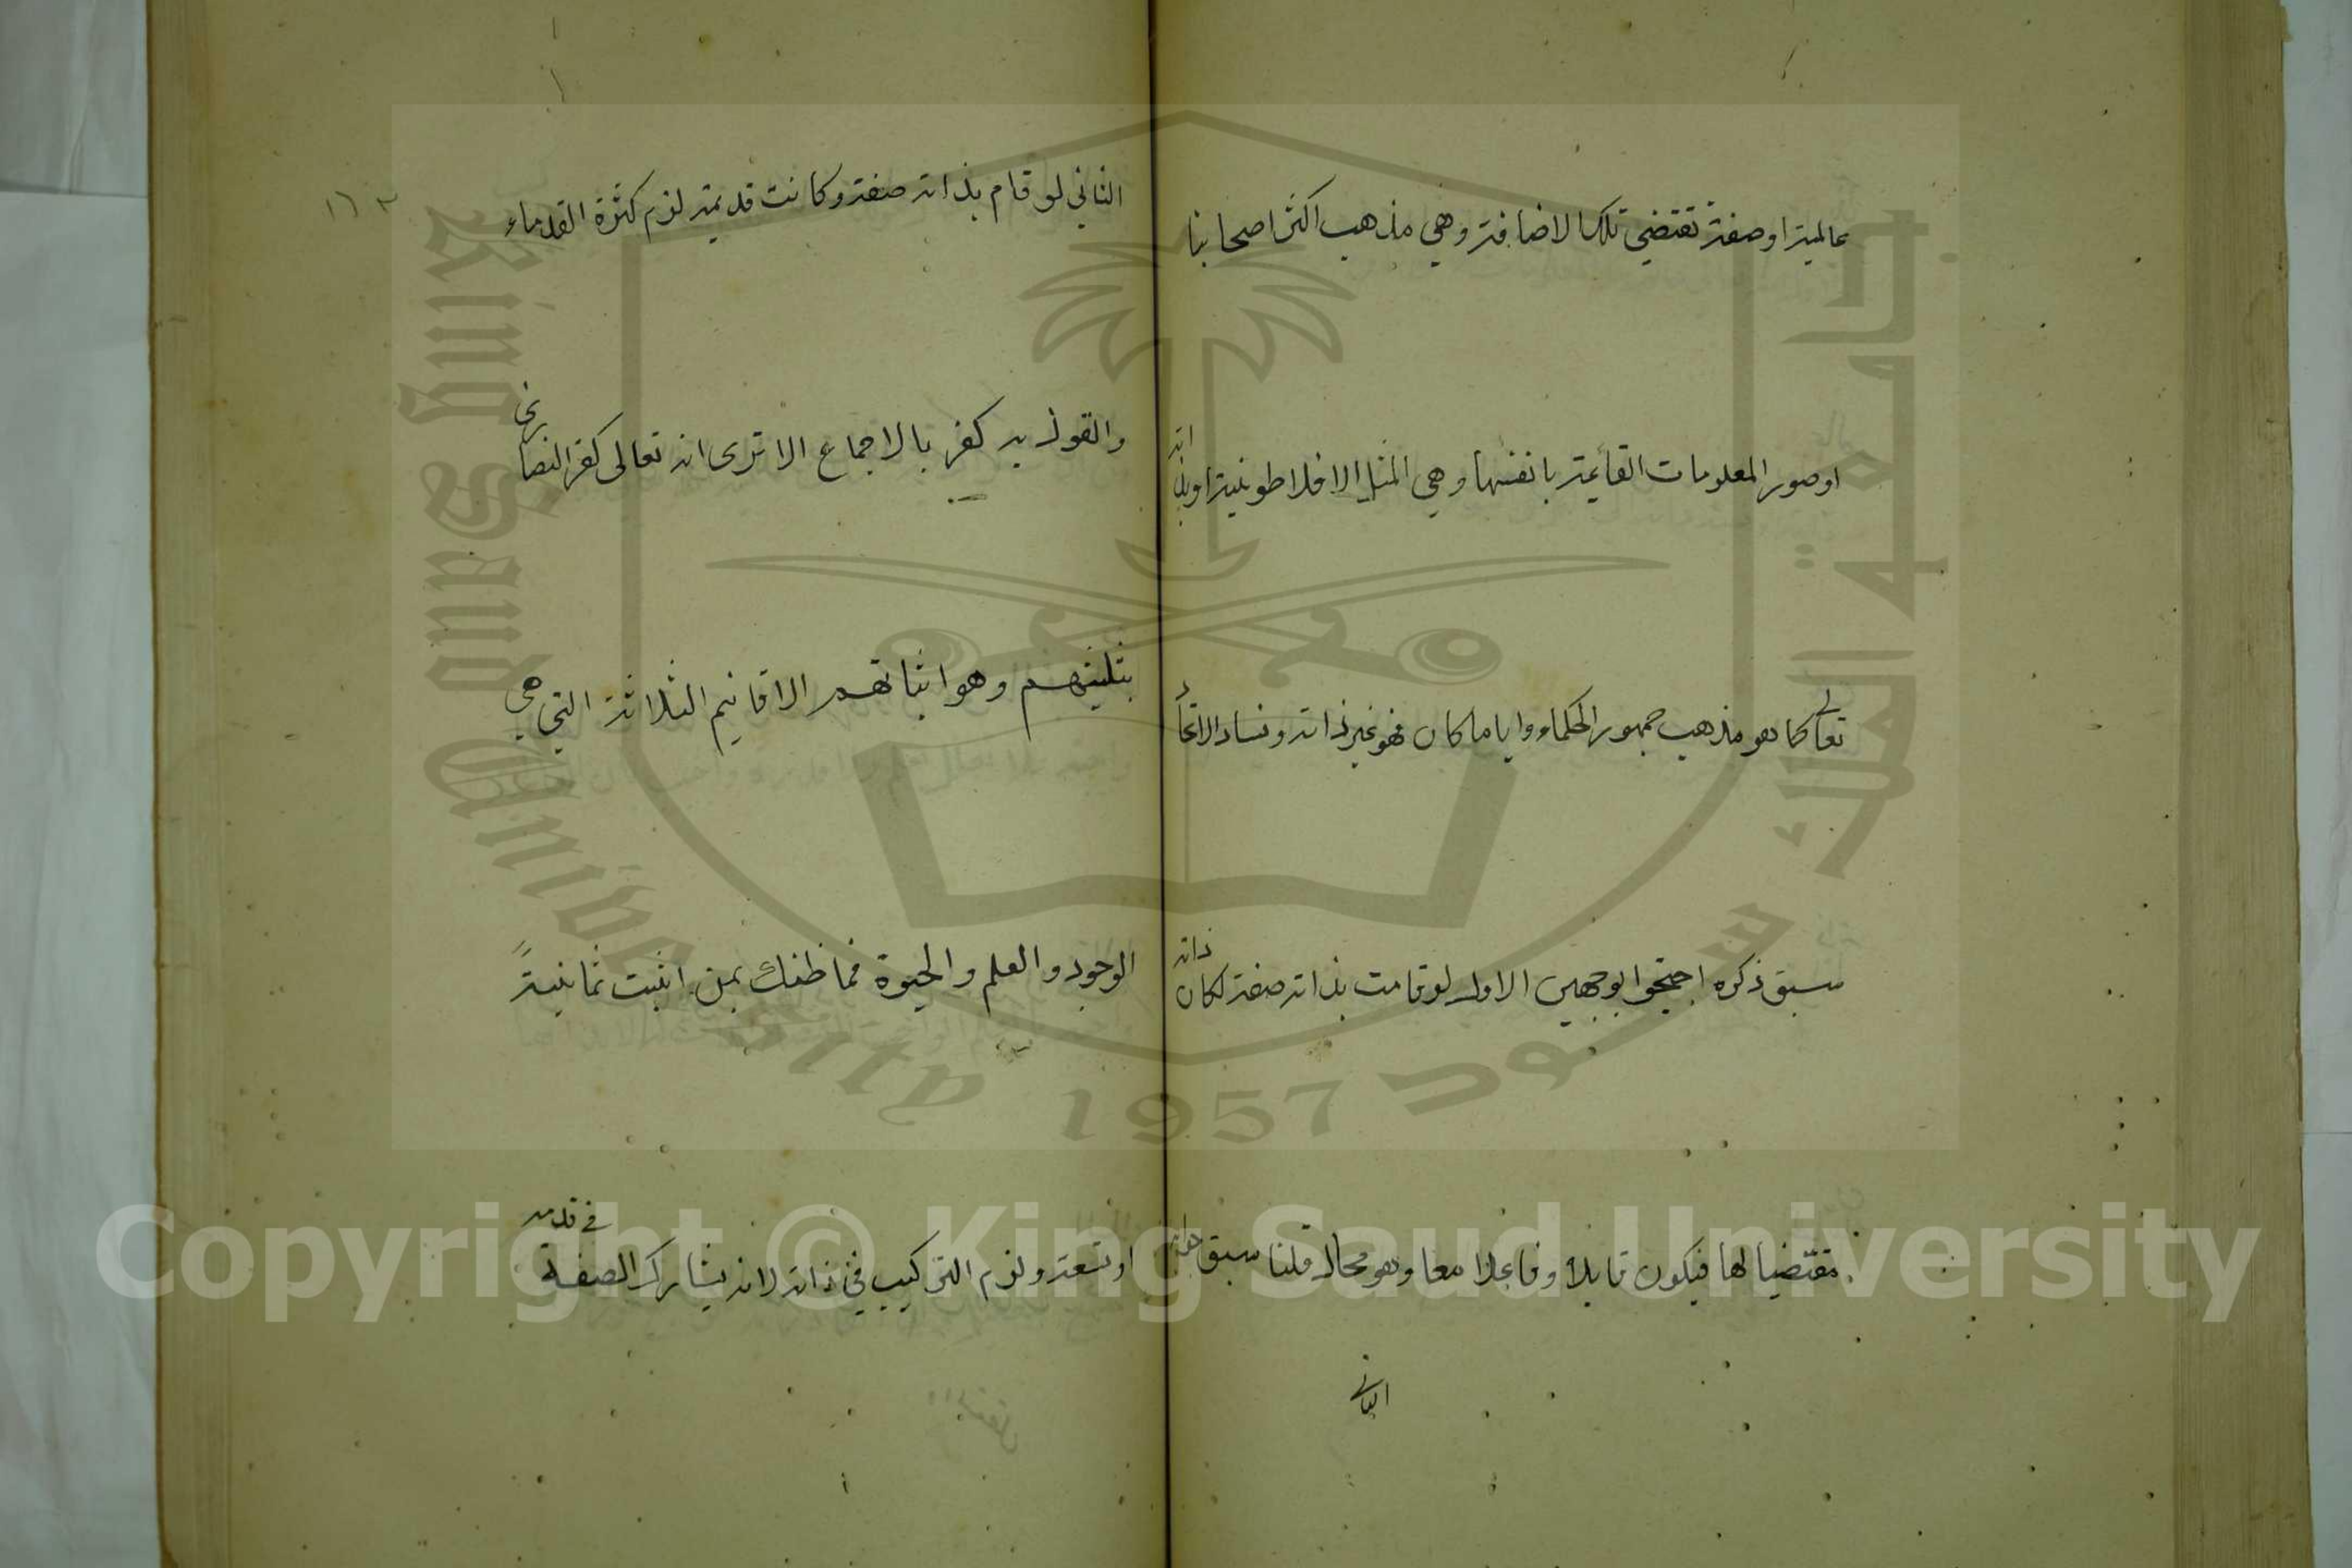 عالمية او صفة تقتضي تلك الاضافة وهي مذهب اكثر اصحابنا
او صور المعلومات القائمة بانفسها وهي المثل الافلاطونية او بذاته
تعالى كما هو مذهب جمهور الحكماء وايا ما كان فهو غير ذاته وفساد الاتحاد
سبق ذكره احتجوا بوجهين الاول لو قامت بذاته صفة لكان ذاته
مقتضيا لها فيكون قابلا وفاعلا معا وهو محال قلنا سبق
الثاني
١٦٣
الثاني لو قام بذاته صفة وكانت قديمة لزم كثرة القدماء
والقول به كفر بالاجماع الا ترى انه تعالى كفر النصارى
بتثليثهم وهو اثباتهم الاقانيم الثلاثة التي هي
الوجود والعلم والحيوة فما ظنك بمن اثبت ثمانيةً
او تسعة ولزم التركيب في ذاته لانه يشارك الصفة في قدمه
King Saud University
1957
جامعة الملك سعود
Copyright © King Saud University